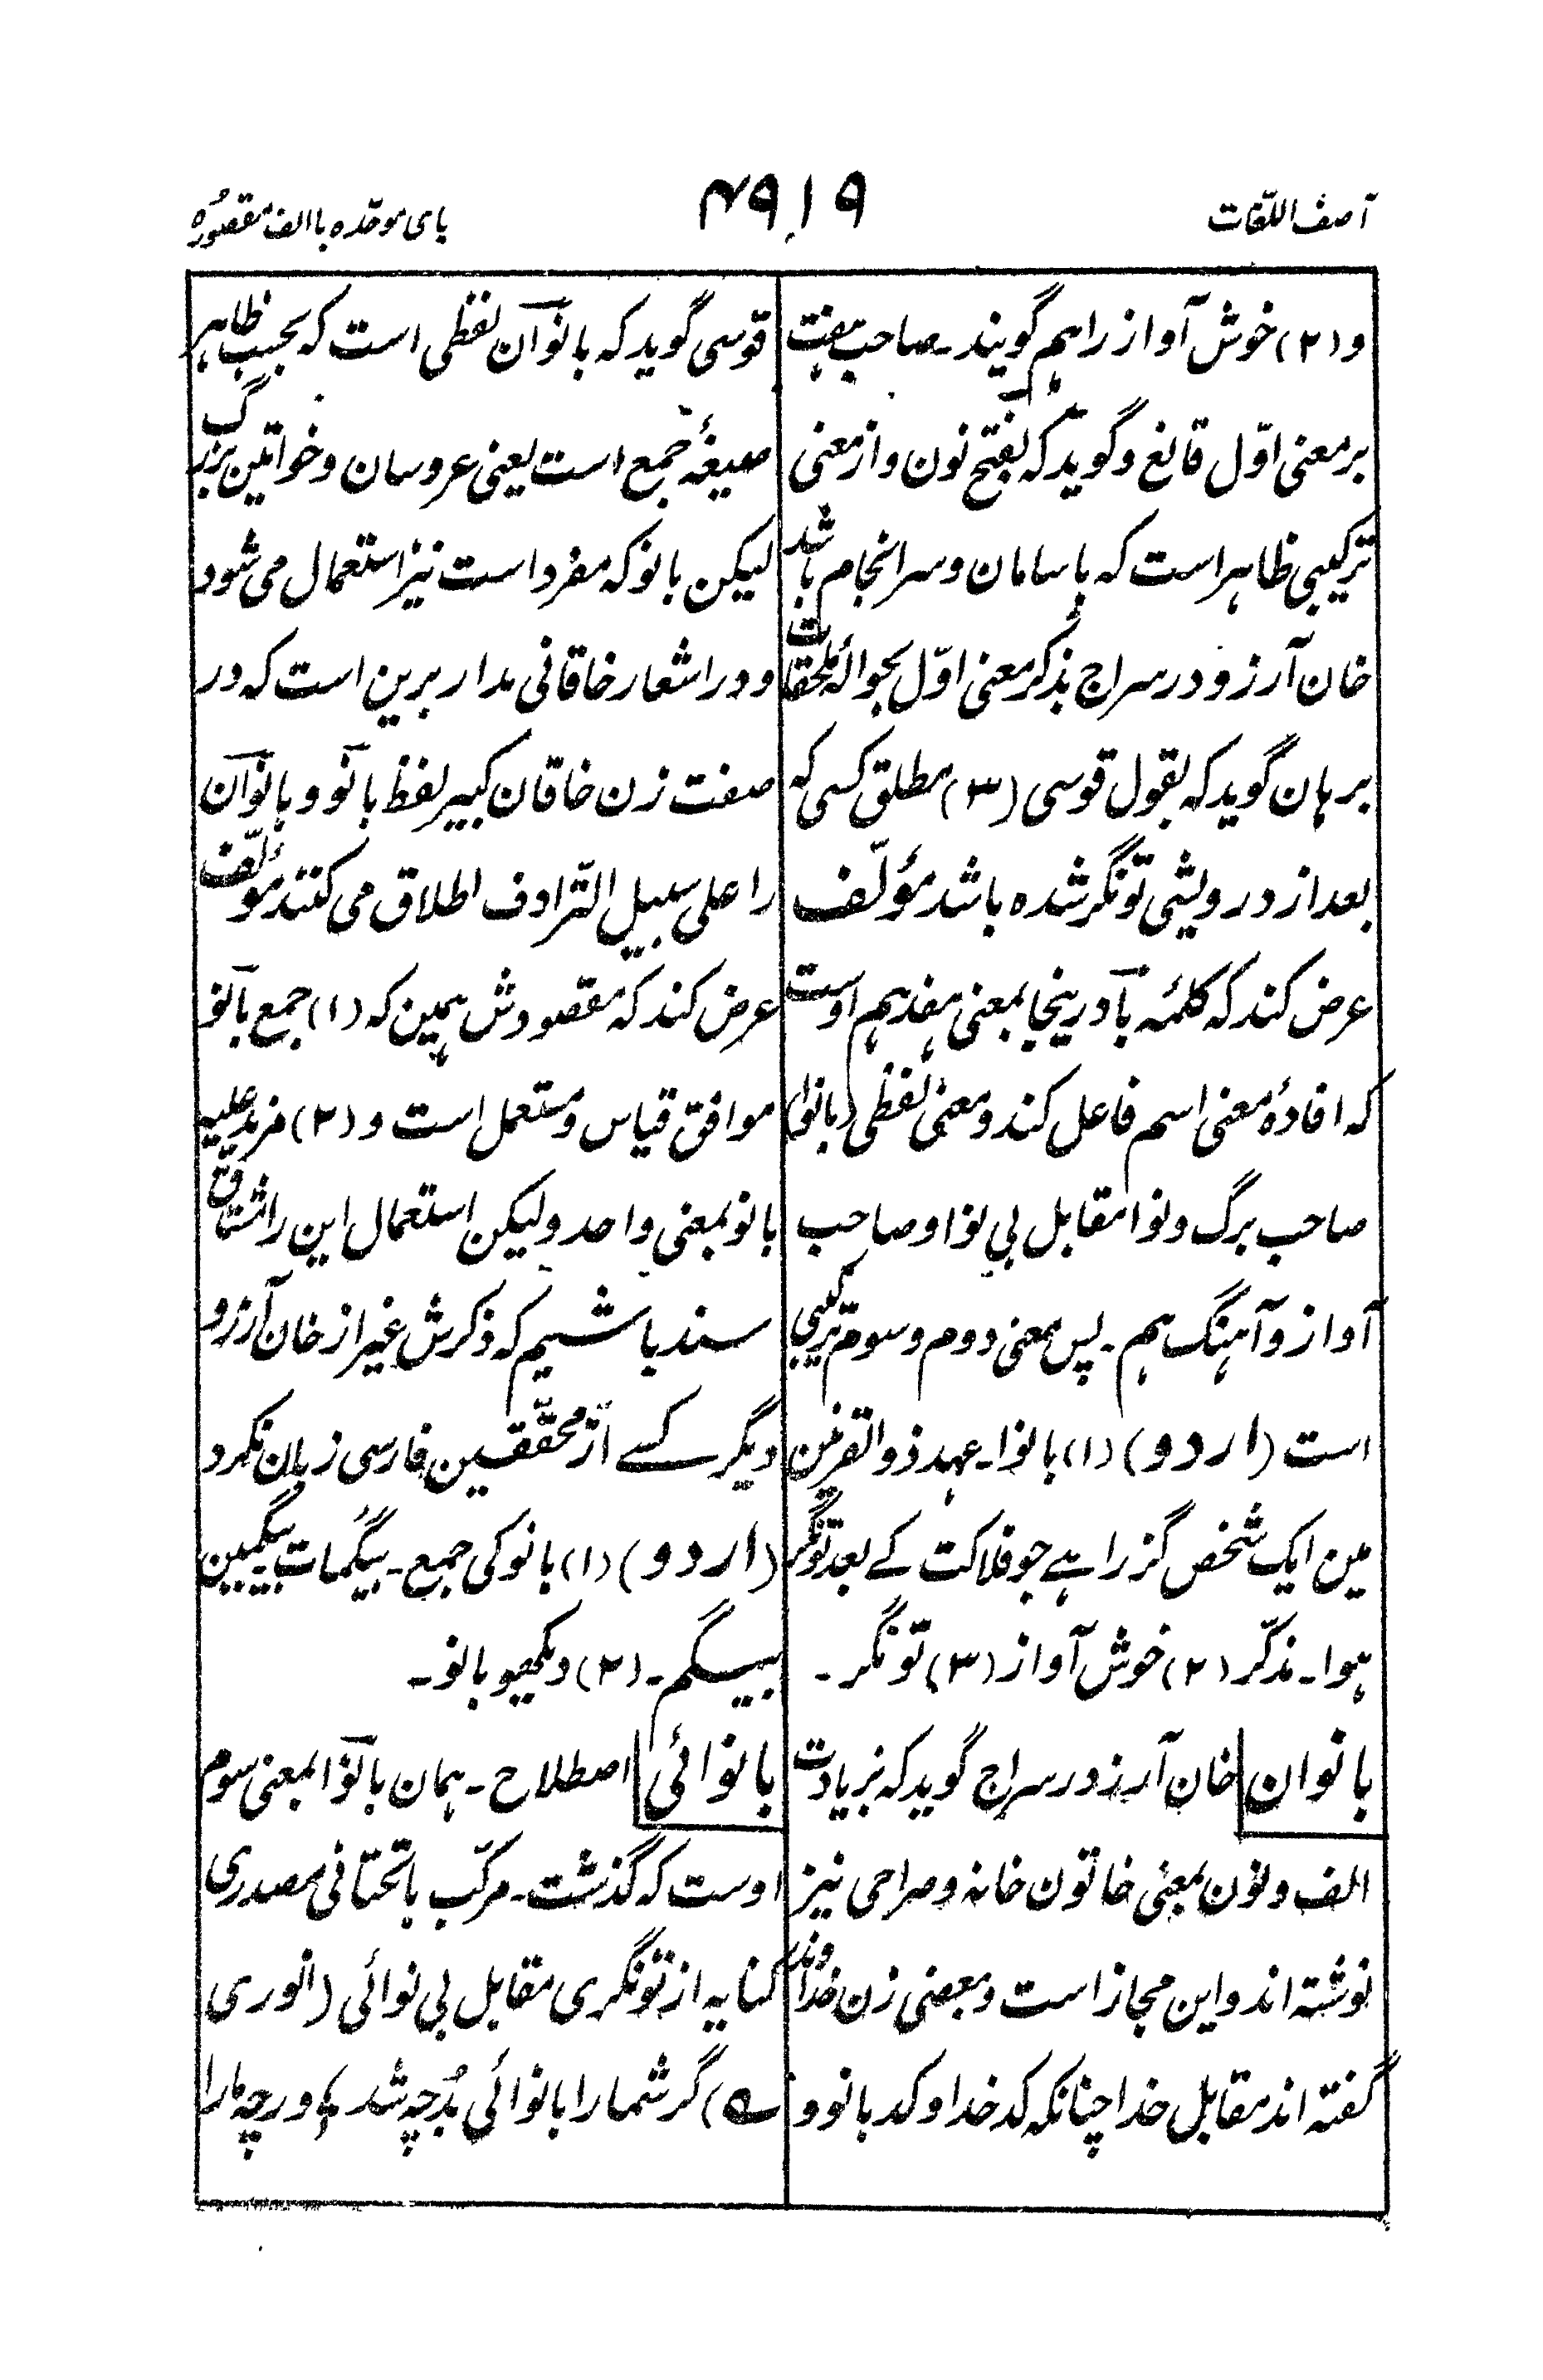 آصف اللّغات
۴۹۱۹
بای موحّده با الف مقصوره
و (۲) خوش آواز را هم گویند ـ صاحب هفت
بر معنی اوّل قانع و گوید که بفتح نون و از معنی
ترکیبی ظاهر است که با سامان و سرانجام باشد
خان آرزو در سراج بذکر معنی اوّل بحوالهٔ ملحقات
برهان گوید که بقول قوسی (۳) مطلق کسی که
بعد از درویشی تونگر شده باشد مؤلّف
عرض کند که کلمئه با درینجا بمعنی هفدهم اوست
که افادهٔ معنی اسم فاعل کند و معنی لفظی (بانوا)
صاحب برگ و نوا مقابل بی نوا و صاحب
آواز و آهنگ هم ـ پس معنی دوم و سوم ترکیبی
است (اردو) (۱) بانوا ـ عهد ذوالقرنین
مین ایک شخص گزرا ہے جو فلاکت کے بعد تونگر
ہوا ـ مذکّر (۲) خوش آواز (۳) تونگر ـ
بانوان خان آرزو در سراج گوید که بزیادت
الف و نون بمعنی خاتون خانه و صراحی نیز
نوشته اند و این مجاز است و بمعنی زن خداوند
گفته اند مقابل خدا چنانکه کدخدا و کدبانو و
قوسی گوید که بانوان لفظی است که بحسب ظاهر
صیغهٔ جمع است یعنی عروسان و خواتین بزرگ
لیکن بانو که مفرد است نیز استعمال می شود
و در اشعار خاقانی مدار برین است که در
صفت زن خاقان کبیر لفظ بانو و بانوان
را علی سبیل التّرادف اطلاق می کنند مؤلّف
عرض کند که مقصودش همین که (۱) جمع بانو
موافق قیاس و مستعمل است و (۲) مزید علیه
بانو بمعنی واحد و لیکن استعمال این را مشتاق
سند باشیم که ذکرش غیر از خان آرزو
دیگر کسے از محقّقین فارسی زبان نکرد
(اردو) (۱) بانو کی جمع ـ بیگمات ـ بیگمین
بیگم ـ (۲) دیکھو بانو ـ
بانوائی اصطلاح ـ همان بانوا بمعنی سوم
اوست که گذشت ـ مرکّب با تحتانی مصدری
کنایه از تونگری مقابل بی نوائی (انوری
ے) گر شما را بانوائی بُد چه شد ؛ ور چه ما را